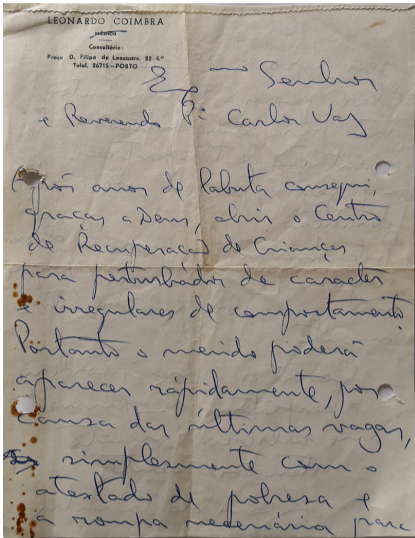 LEONARDO COIMBRA
MÉDICO
Consultório:
Praça D. Filipa de Lencastre, 22-4.º
Telef. 26715—PORTO
Senhor
e Reverendo P.e Carlos Vaz
Após anos de labuta consegui,
graças a Deus, abrir o Centro
de Recuperação de Crianças
para perturbados de caracter
e irregulares de comportamento.
Portanto o menido poderá
aparecer rápidamente, por
causa das últimas vagas,
simplesmente com o
atestado de pobresa e
a roupa necessária para